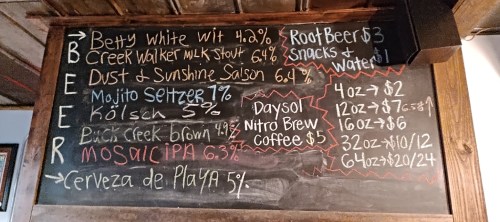 BEER
→ Betty White Wit 4.2%
Creek Walker Milk Stout 6.4%
Dust & Sunshine Saison 6.4%
Mojito Seltzer 7%
Kölsch 5%
Buck Creek brown 4.9%
MOSAIC IPA 6.3%
→Cerveza de PlAYA 5%
Root Beer $3
Snacks &
Water $1
Daysol
Nitro Brew
Coffee $5
4oz→$2
12oz→$7
16oz→$6
32oz→$10/12
64oz→$20/24